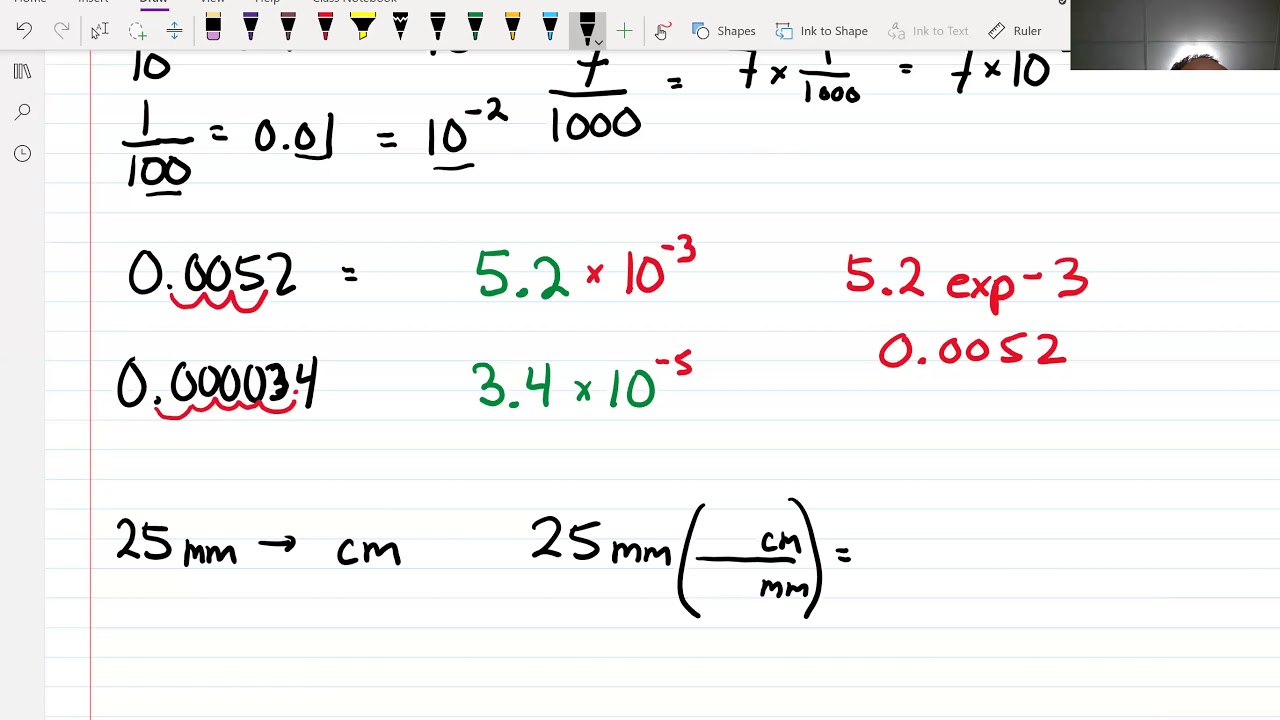 Home Insert Draw View Help Class Notebook
Shapes Ink to Shape Ink to Text Ruler
10 7/1000 = 7 × 1/1000 = 7 × 10
1/100 = 0.01 = 10⁻²
0.0052 = 5.2 × 10⁻³ 5.2 exp - 3
0.0052
0.000034 3.4 × 10⁻⁵
25 mm → cm 25 mm ( cm / mm ) =